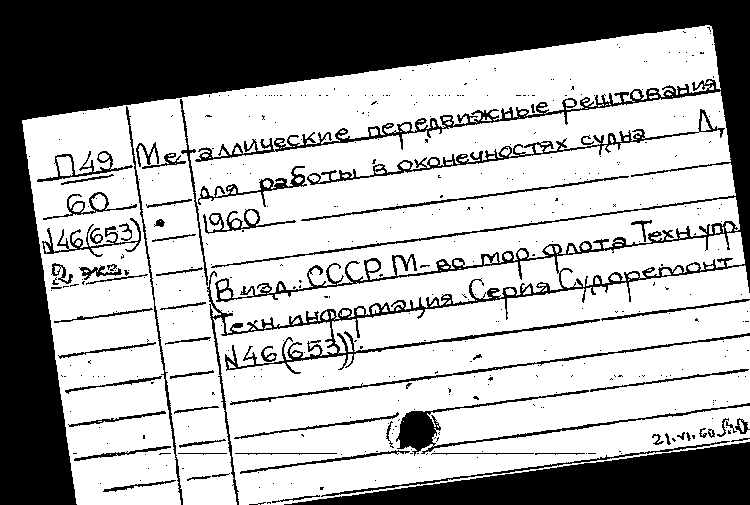 П49
60
N46(653)
2 экз.
Металлические передвижные рештования
для работы в оконечностях судна Л,
1960
(В изд.: СССР. М-во мор. флота. Техн. упр.
Техн. информация. Серия Судоремонт
N46(653)).
21.VI.60